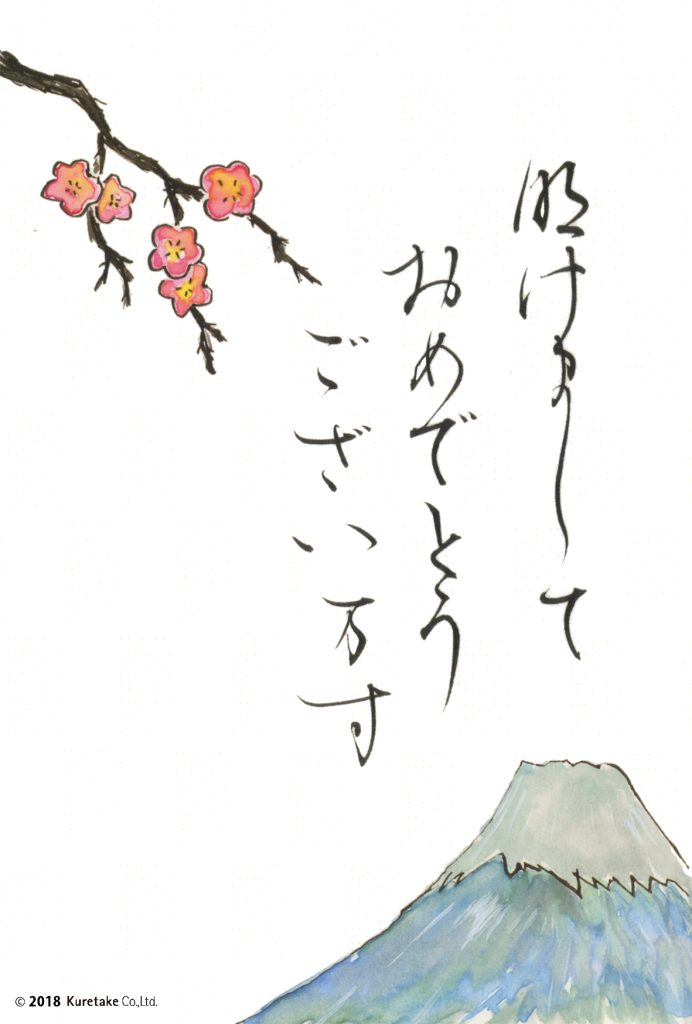 明けまして
おめでとう
ござい万す
© 2018 Kuretake Co.,Ltd.